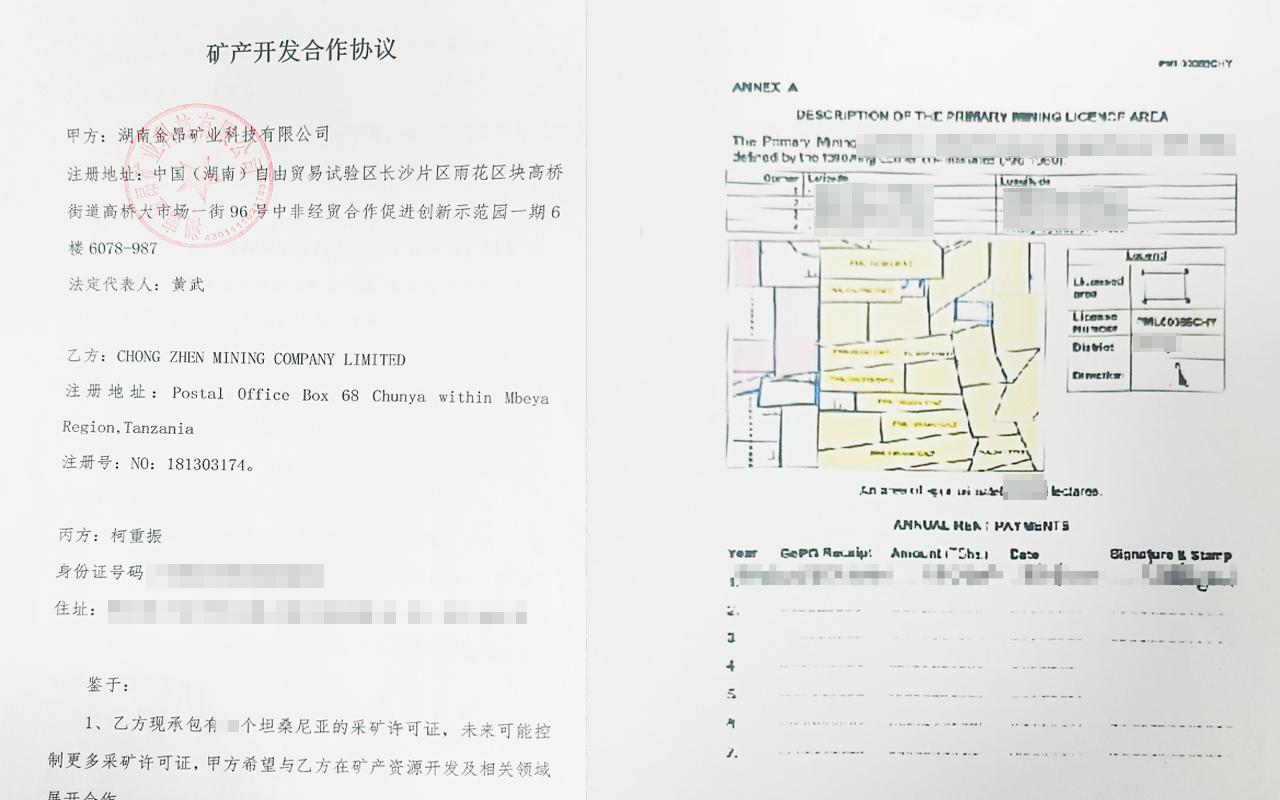 矿产开发合作协议
甲方：湖南金昂矿业科技有限公司
注册地址：中国（湖南）自由贸易试验区长沙片区雨花区块高桥
街道高桥大市场一街96号中非经贸合作促进创新示范园一期6
楼6078-987
法定代表人：黄武
乙方：CHONG ZHEN MINING COMPANY LIMITED
注册地址：Postal Office Box 68 Chunya within Mbeya
Region,Tanzania
注册号：NO：181303174。
丙方：柯重振
身份证号码
住址：
鉴于：
1、乙方现承包有 个坦桑尼亚的采矿许可证，未来可能控
制更多采矿许可证，甲方希望与乙方在矿产资源开发及相关领域
展开合作
ANNEX A
DESCRIPTION OF THE PRIMARY MINING LICENSE AREA
The Primary Mining
defined by the following corner
Corner Latitude Longitude
1
2
3
4
Legend
Licensed
area
License
Number
District
Direction
An area of approximately hectares.
ANNUAL RENT PAYMENTS
Year GePG Receipt Amount (TShs.) Date Signature & Stamp
1.
2.
3
4
5
7.